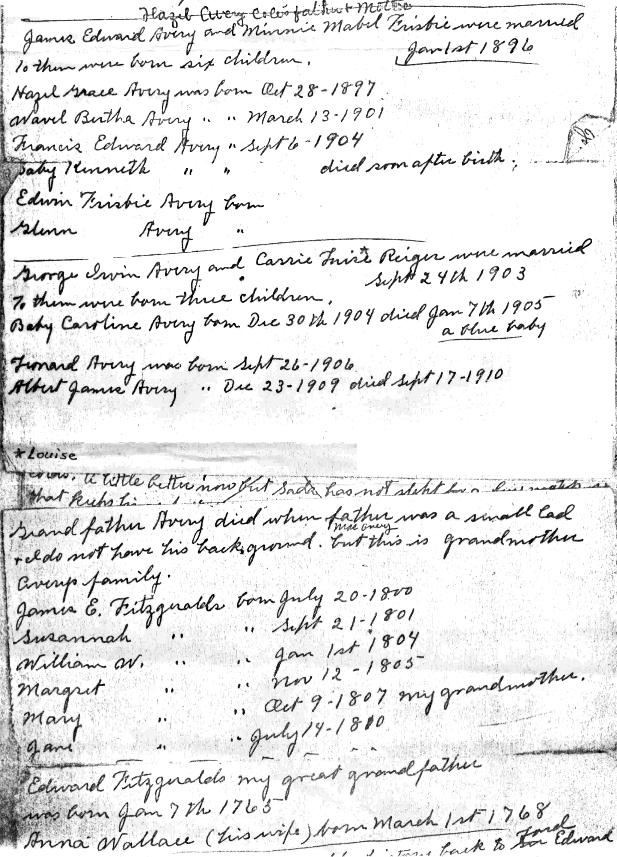 Hazel Avery Cole's father & Mother
James Edward Avery and Minnie Mabel Frisbie were married
Jan 1st 1896
To them were born six children.
Hazel Grace Avery was born Oct 28-1897
Wavel Bertha Avery " " March 13-1901
Francis Edward Avery " Sept 6-1904
Baby Kenneth " " died soon after birth.
Edwin Frisbie Avery born
Glenn Avery "
George Irvin Avery and Carrie * Reiger were married
Sept 24th 1903
To them were born three children.
Baby Caroline Avery born Dec 30th 1904 died Jan 7th 1905
a blue baby
Leonard Avery was born Sept 26-1906
Albert James Avery " Dec 23-1909 died Sept 17-1910
*Louise
a little better now but has not slept
that
Grand father Avery died when father was a small lad
+ I do not have his back ground. but this is grandmother
Averys family.
James E. Fitzgeralds born July 20-1800
Susannah " " Sept 21-1801
William W. " " Jan 1st 1804
Margret " " Nov 12-1805
Mary " " Oct 9-1807 my grandmother.
Jane " " July 14-1810
Edward Fitzgeralds my great grandfather
was born Jan 7th 1765
Anna Wallace (his wife) born March 1st 1768
back to Lord Edward